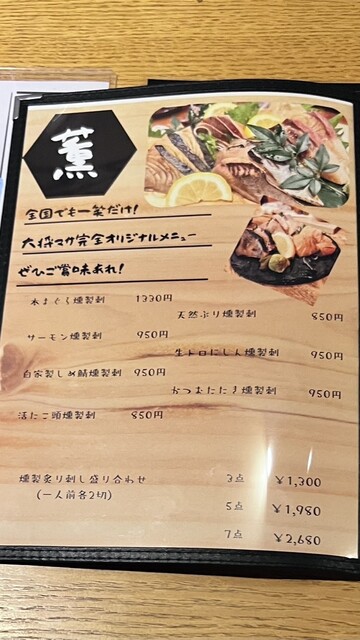 薫
全国でも一笑だけ!
大将マサ完全オリジナルメニュー
ぜひご賞味あれ!
本まぐろ燻製刺 1330円
天然ぶり燻製刺 850円
サーモン燻製刺 950円
生トロにしん燻製刺 950円
自家製しめ鯖燻製刺 950円
かつおたたき燻製刺 950円
活たこ頭燻製刺 850円
燻製炙り刺し盛り合わせ
(一人前各2切)
3点 ¥1,300
5点 ¥1,980
7点 ¥2,680